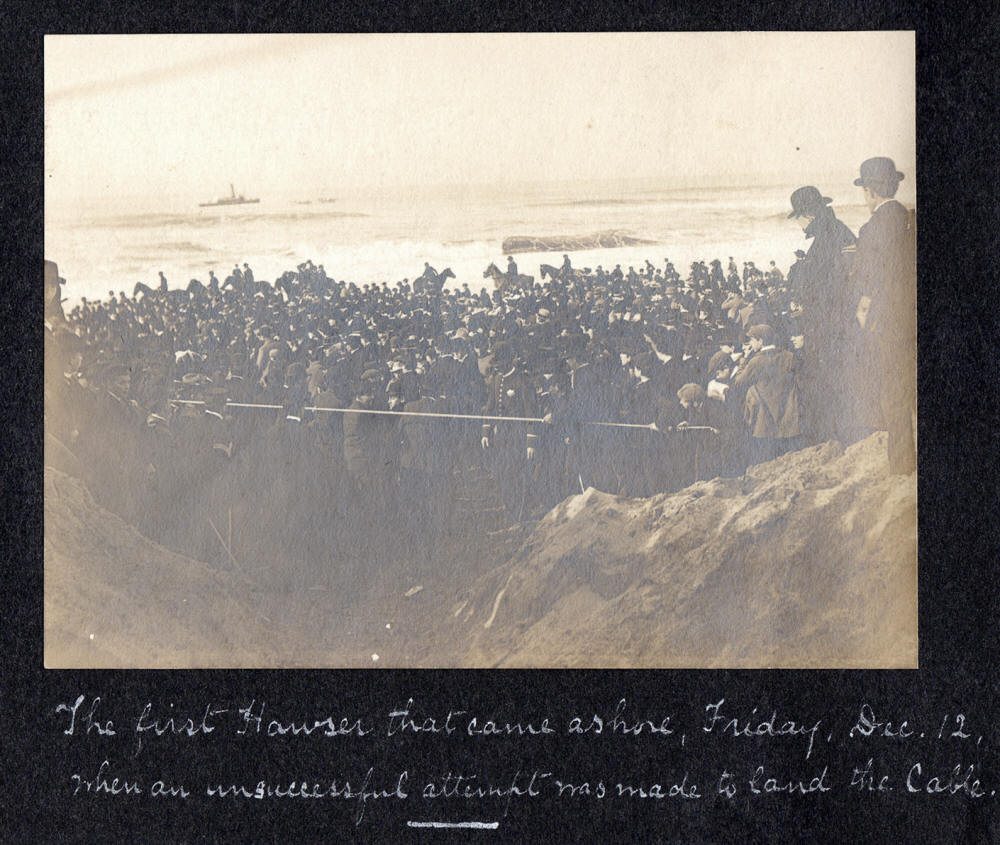 The first Hawser that came ashore, Friday, Dec. 12,
when an unsuccessful attempt was made to land the Cable.